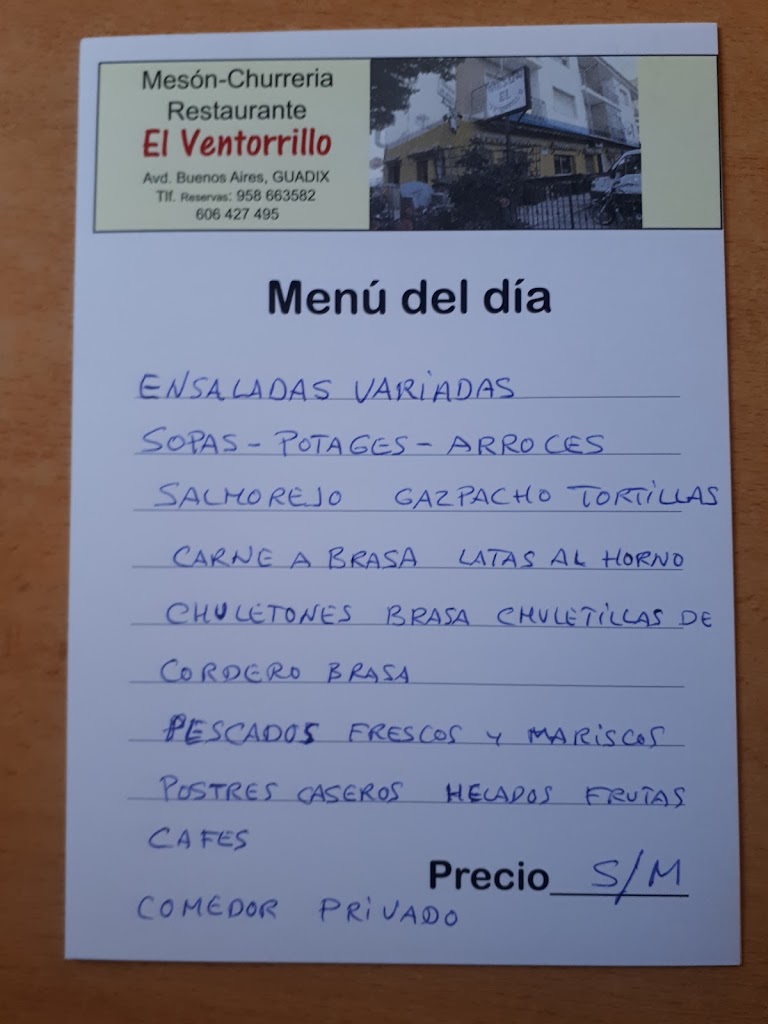 Mesón-Churreria
Restaurante
El Ventorrillo
Avd. Buenos Aires, GUADIX
Tlf. Reservas: 958 663582
606 427 495
EL
Menú del día
ENSALADAS VARIADAS
SOPAS - POTAGES - ARROCES
SALMOREJO GAZPACHO TORTILLAS
CARNE A BRASA LATAS AL HORNO
CHULETONES BRASA CHULETILLAS DE
CORDERO BRASA
PESCADOS FRESCOS Y MARISCOS
POSTRES CASEROS HELADOS FRUTAS
CAFES
Precio S/M
COMEDOR PRIVADO